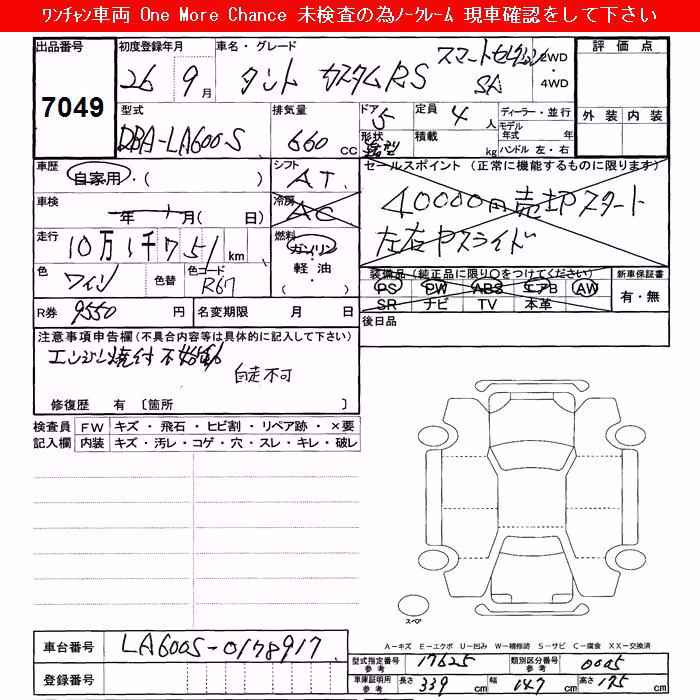 ﾜﾝﾁｬﾝ車両 One More Chance 未検査の為ﾉｰｸﾚｰﾑ 現車確認をして下さい
出品番号 初度登録年月 車名・グレード 評価点
7049 26 9月 タント カスタムRS スマートセレクション SA 2WD・4WD
型式 排気量 ドア 定員 ディーラー・並行 外装 内装
DBA-LA600S 660 cc 5 4人 モデル年式 年
形状 箱型 積載 kg ハンドル 左・右
車歴 シフト セールスポイント(正常に機能するものに限ります)
自家用・( ) AT 40000円売却スタート
車検 冷房 左右Pスライド
年 月( 日) AC
走行 燃料
10万1千751km ガソリン・軽油・( )
色 色替 色コード 装備品(純正品に限り○をつけてください) 新車保証書
ワイン R67 PS PW ABS エアB AW 有・無
SR ナビ TV 本革
R券 9550円 名変期限 月 日 後日品
注意事項申告欄(不具合内容等は具体的に記入して下さい)
エンジン焼付 不始動
自走不可
修復歴 有〔箇所 〕
検査員記入欄 FW キズ・飛石・ヒビ割・リペア跡・×要
内装 キズ・汚レ・コゲ・穴・スレ・キレ・破レ
スペア
A－キズ E－エクボ U－凹み W－補修跡 S－サビ C－腐食 XX－交換済
車台番号 LA600S-0178917
型式指定番号 参考 17625 類別区分番号 参考 0005
登録番号
車庫証明用 参考 長さ 339cm 幅 147cm 高さ 175cm